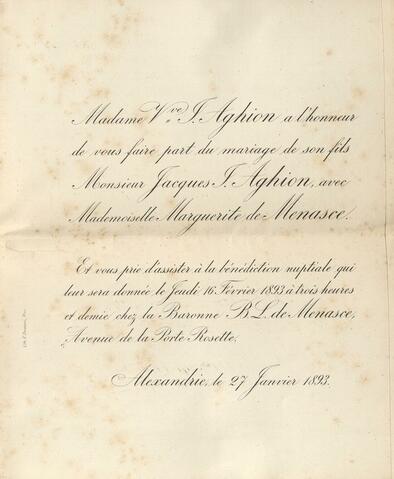 Madame Vve J. Aghion a l'honneur
de vous faire part du mariage de son fils
Monsieur Jacques J. Aghion, avec
Mademoiselle Marguerite de Menasce.
Et vous prie d'assister à la bénédiction nuptiale qui
leur sera donnée le Jeudi 16 Février 1893 à trois heures
et demie chez la Baronne B. L. de Menasce,
Avenue de la Porte Rosette.
Alexandrie, le 27 Janvier 1893.